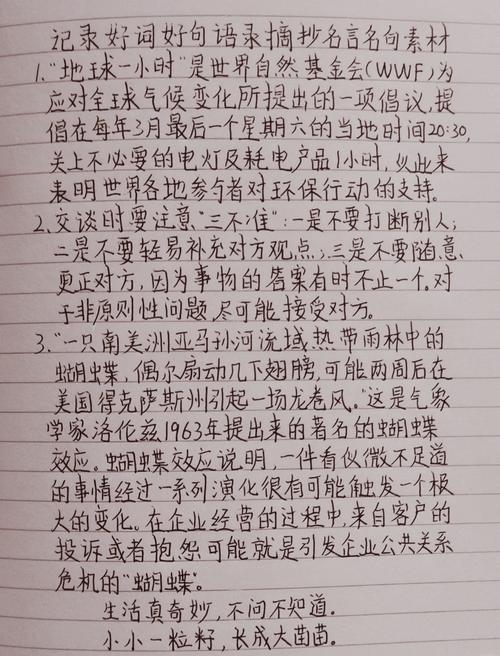 记录好词好句语录摘抄名言名句素材
1.“地球一小时”是世界自然基金会(WWF)为
应对全球气候变化所提出的一项倡议,提
倡在每年3月最后一个星期六的当地时间20:30,
关上不必要的电灯及耗电产品1小时,以此来
表明世界各地参与者对环保行动的支持。
2.交谈时要注意“三不准”:一是不要打断别人;
二是不要轻易补充对方观点;三是不要随意
更正对方,因为事物的答案有时不止一个。对
于非原则性问题,尽可能接受对方。
3.“一只南美洲亚马孙河流域热带雨林中的
蝴蝶,偶尔扇动几下翅膀,可能两周后在
美国得克萨斯州引起一场龙卷风。”这是气象
学家洛伦兹1963年提出来的著名的蝴蝶
效应。蝴蝶效应说明,一件看似微不足道
的事情经过一系列演化很有可能触发一个极
大的变化。在企业经营的过程中,来自客户的
投诉或者抱怨可能就是引发企业公共关系
危机的“蝴蝶”。
生活真奇妙,不问不知道.
小小一粒籽,长成大苗苗.